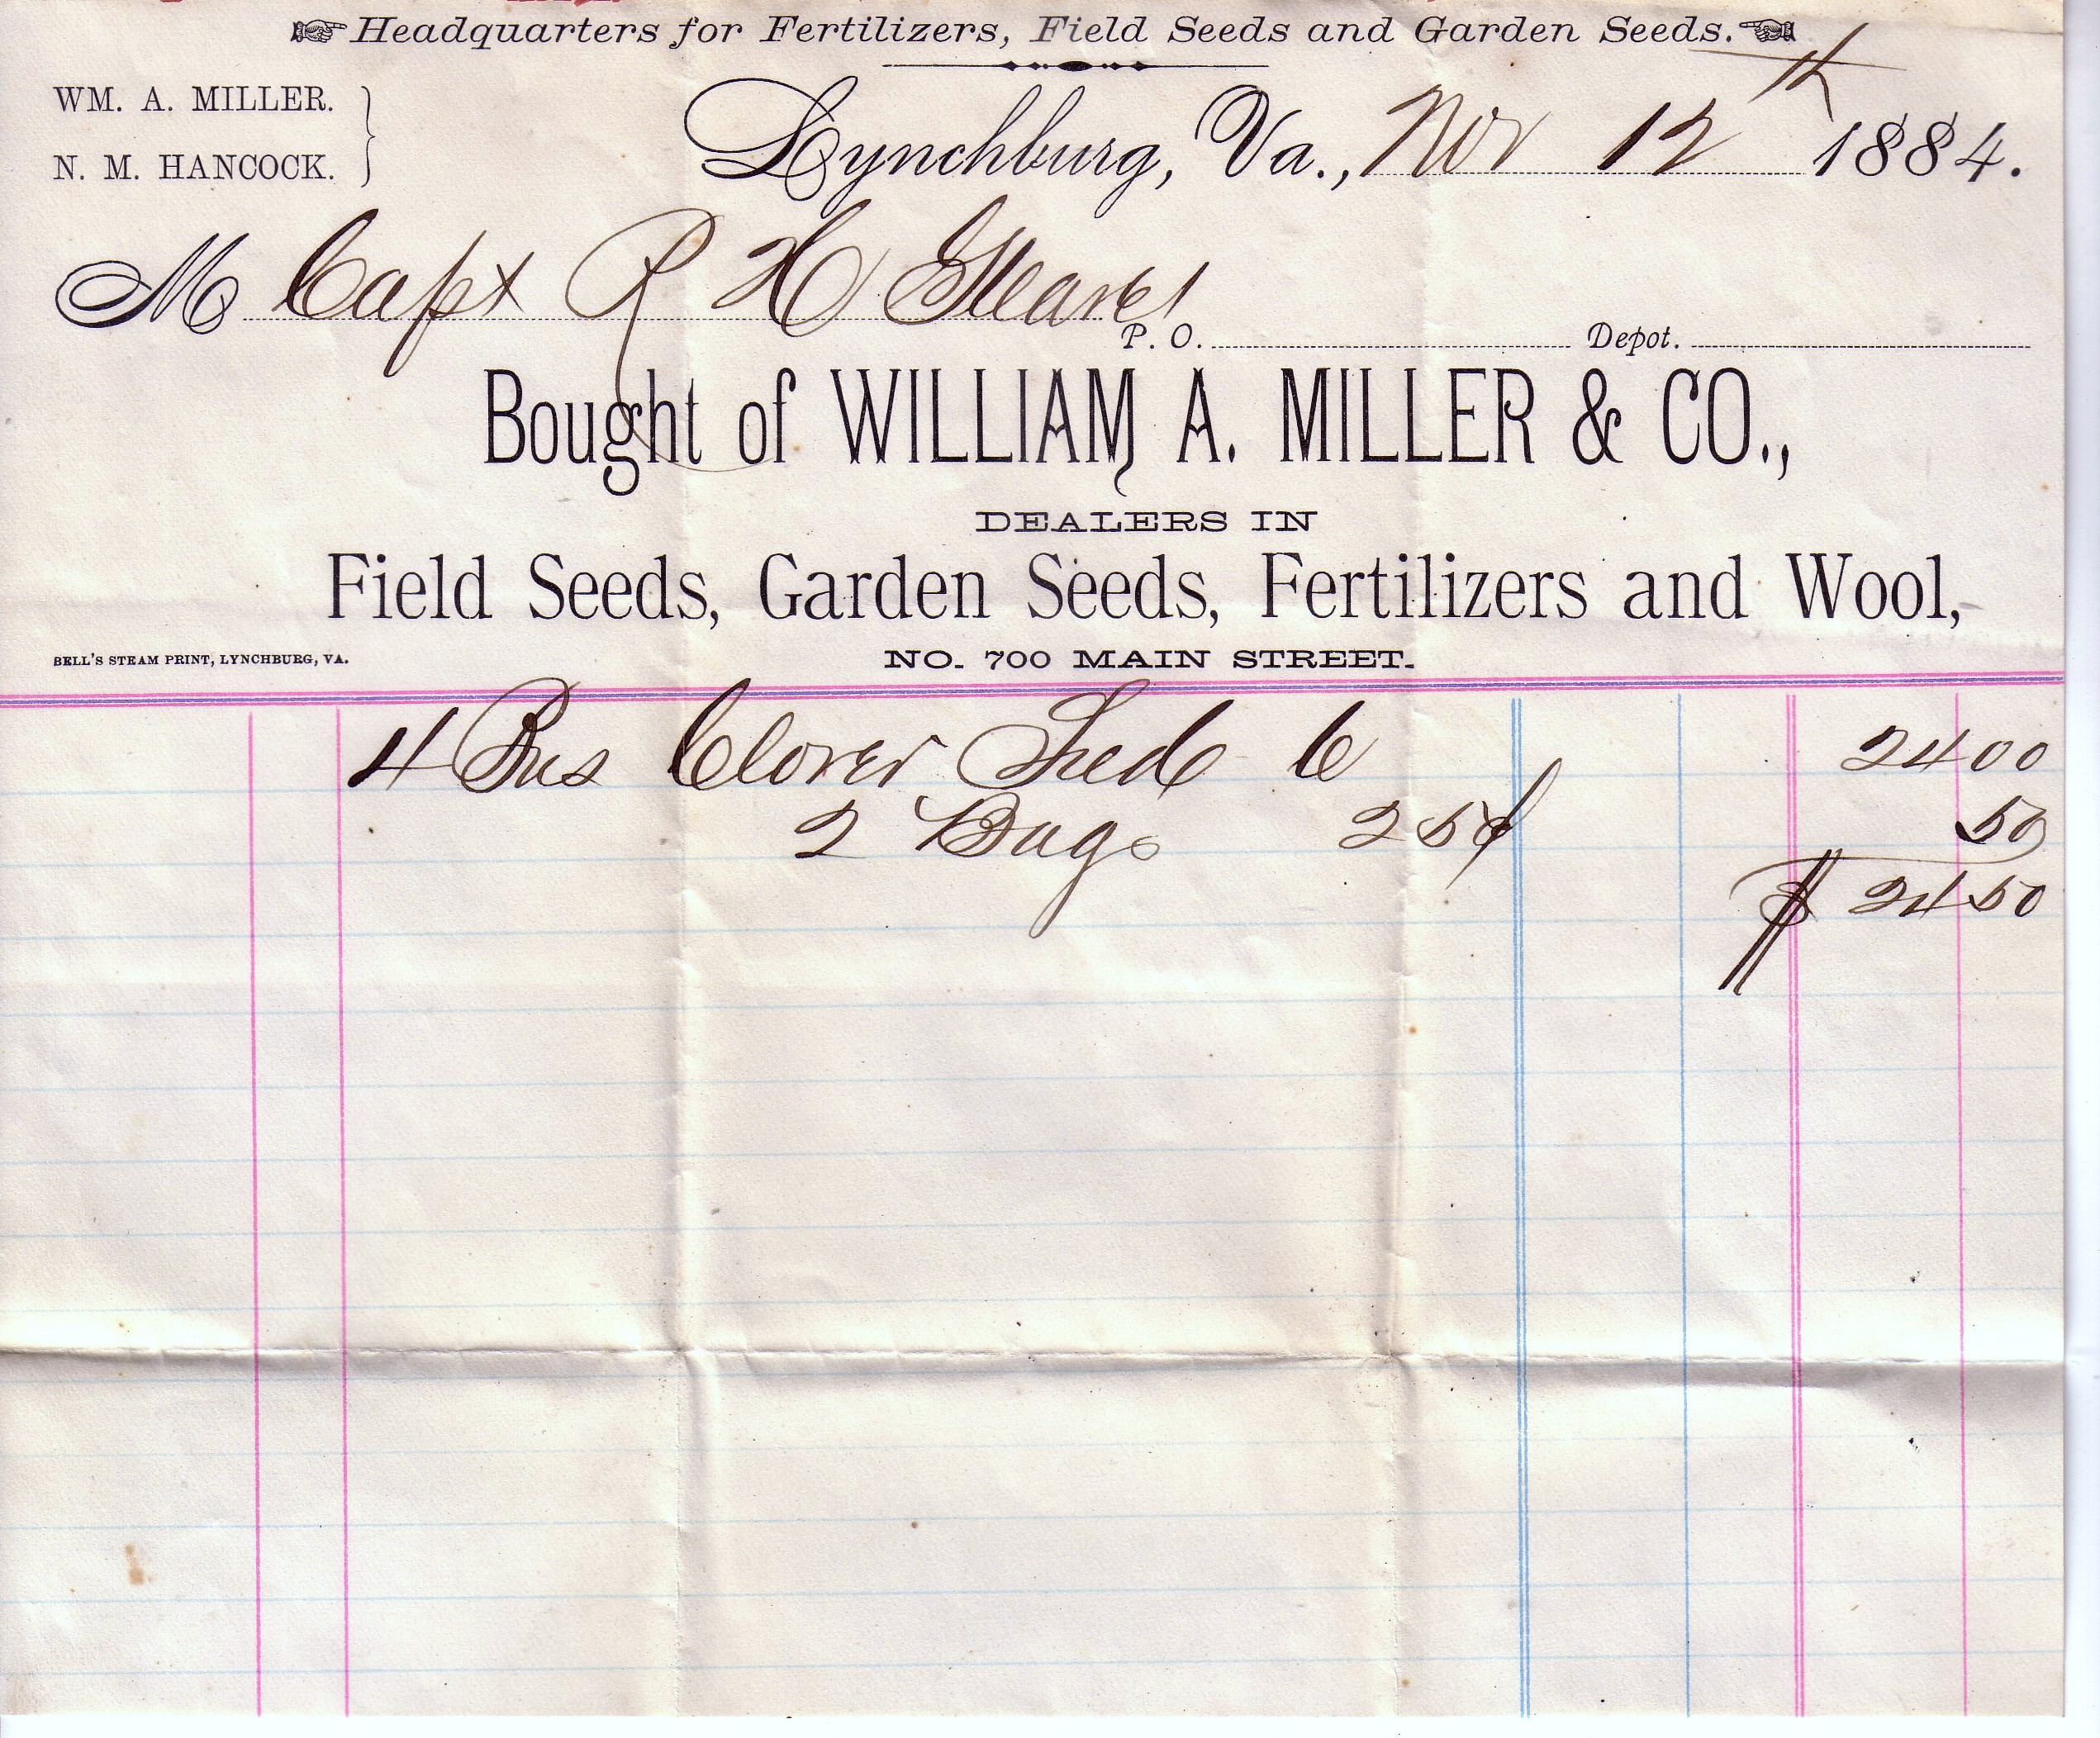 Headquarters for Fertilizers, Field Seeds and Garden Seeds.
WM. A. MILLER.
N. M. HANCOCK.
Lynchburg, Va., Nov 12th 1884.
M Capt R H
P. O. Depot.
Bought of WILLIAM A. MILLER & CO.,
DEALERS IN
Field Seeds, Garden Seeds, Fertilizers and Wool,
BELL'S STEAM PRINT, LYNCHBURG, VA.
NO. 700 MAIN STREET.
4 Bus Clover Seed 6 24 00
2 Bags 25¢ 50
$ 24 50